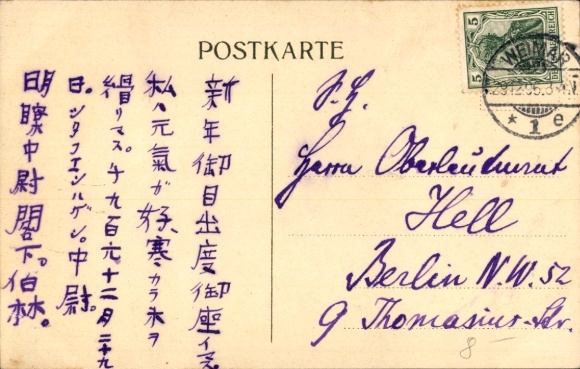 POSTKARTE
5 DEUTSCHES REICH 5
WEIMAR
29.12.05.
* 1 e
新年御目出度御座イマス。
私ハ元氣ガ好、寒カラ氷ヲ
滑リマス。千九百〇五、十二月二十九
日。シタフエンハゲン。中尉。
明瞭中尉閣下。伯林。
S. H.
Herrn Oberleutnant
Hell
Berlin N.W. 52
9 Thomasius-Str.
8-